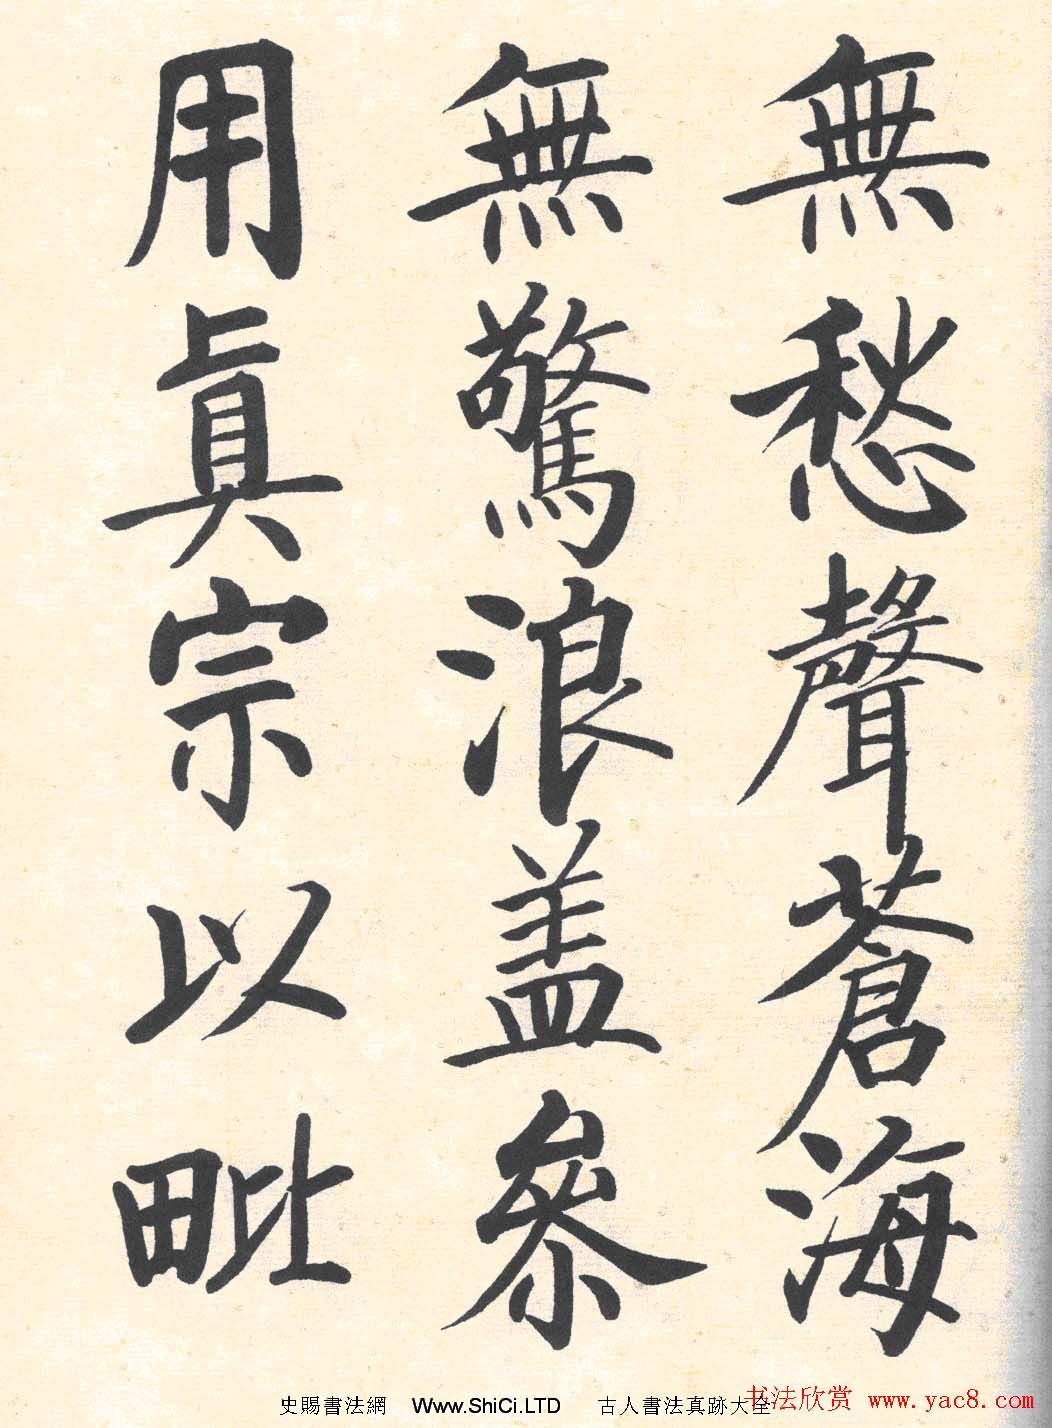 無愁聲蒼海
無驚浪盖叅
用眞宗以毗
史賜書法網 Www.ShiCi.LTD 古人書法真跡大全
书法欣赏 www.yac8.com